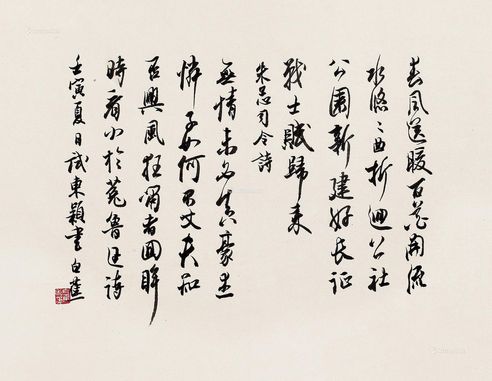 春風送暖百花開流
水悠〻曲折迴公社
公園新建好長征
戰士賦歸来
朱总司令詩
無情未必真豪杰
憐子如何不丈夫知
否興風狂嘯者回眸
時看小於菟魯迅詩
壬寅夏日試東穎書 白蕉